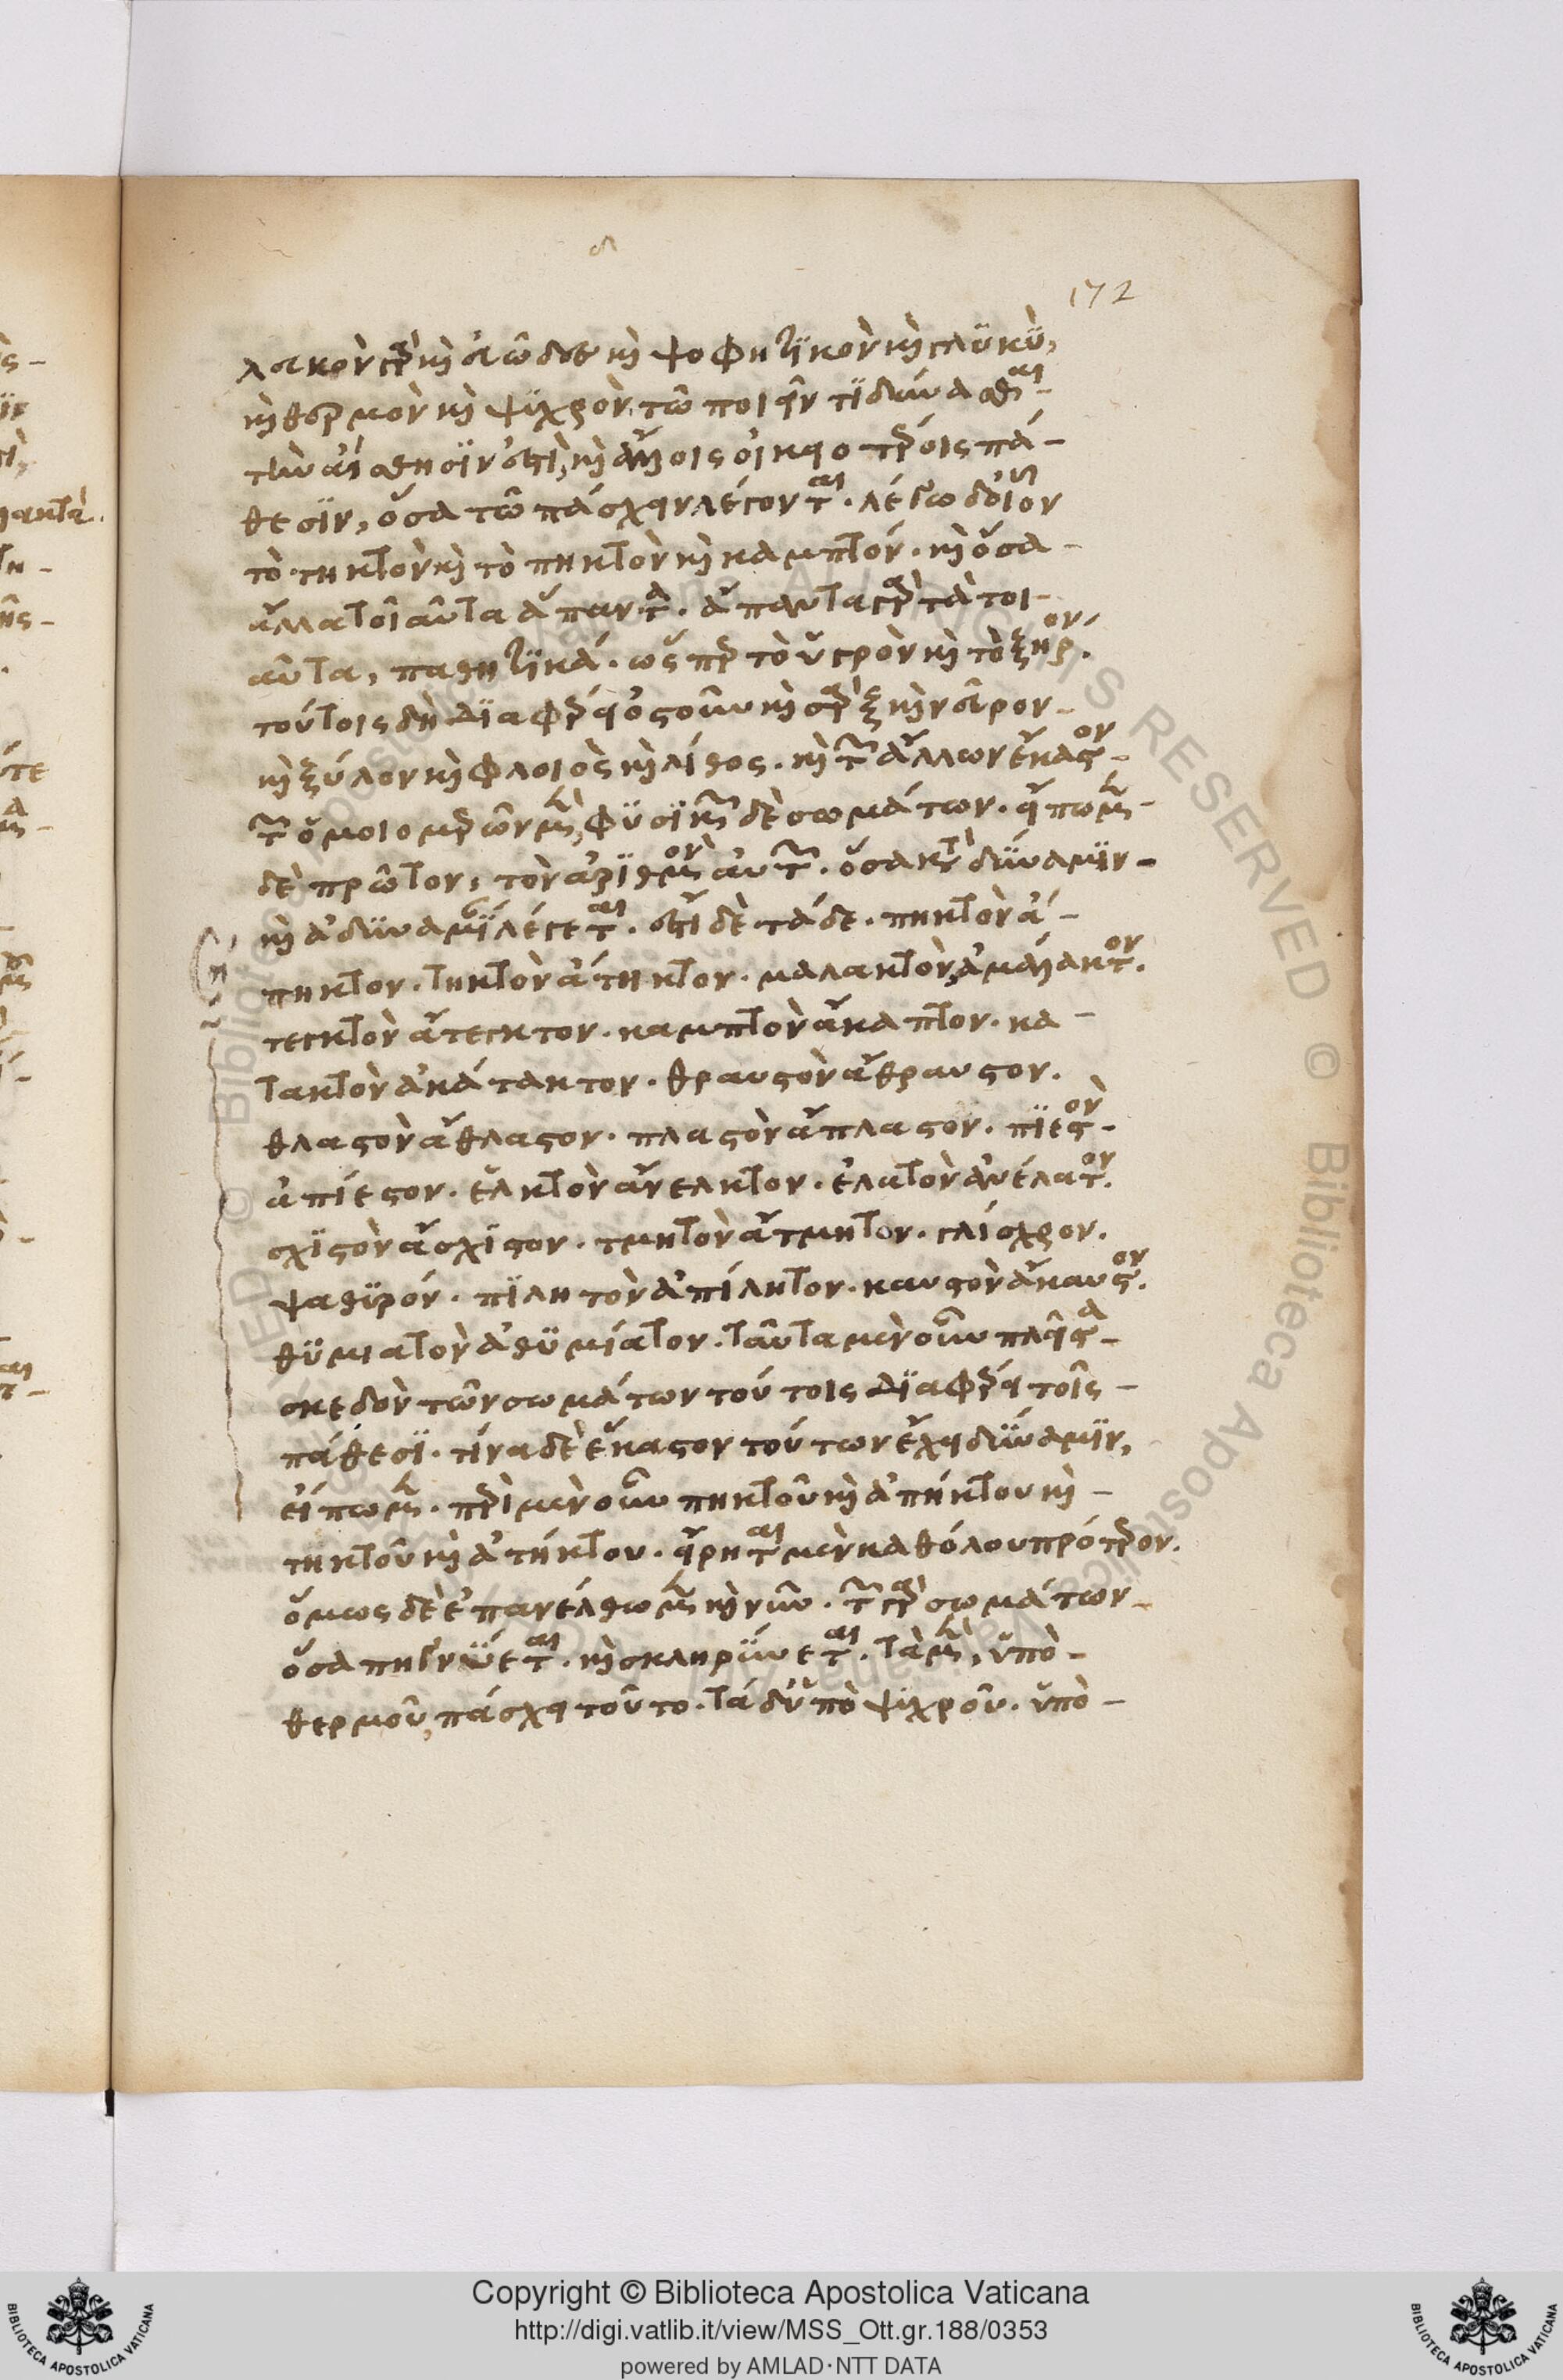 172
λευκὸν γὰρ καὶ εὐῶδες καὶ ψοφητικὸν καὶ γλυκὺ,
καὶ θερμὸν καὶ ψυχρὸν τῶ ποιεῖν τι δύνασθαι
τὴν αἴσθησίν ἐστι, καὶ ἄλλοις οἰκειοτέροις πά-
θεσιν, ὅσα τῶ πάσχειν λέγονται. λέγω δ' οἷον
τὸ τηκτὸν καὶ τὸ πηκτὸν καὶ καμπτόν. καὶ ὅσα
ἄλλα τοιαῦτα ἅπαντα. ἅπαντα γὰρ τὰ τοι-
αῦτα, παθητικά. ὥσπερ τὸ ὑγρὸν καὶ τὸ ξηρόν.
τούτοις δὴ διαφέρει ὀστοῦν καὶ σὰρξ καὶ νεῦρον
καὶ ξύλον καὶ φλοιὸς καὶ λίθος. καὶ τῶν ἄλλων ἕκαστον
τῶν ὁμοιομερῶν μὲν, φυσικῶν δὲ σωμάτων. εἴπωμεν
δὲ πρῶτον, τὸν ἀριθμὸν αὐτῶν. ὅσα κατὰ δύναμιν
καὶ ἀδυναμίαν λέγεται. ἔστι δὲ τάδε. πηκτὸν ἄ-
πηκτον. τηκτὸν ἄτηκτον. μαλακτὸν ἀμάλακτον.
τεγκτὸν ἄτεγκτον. καμπτὸν ἄκαπτον. κα-
τακτὸν ἀκάτακτον. θραυστὸν ἄθραυστον.
θλαστὸν ἄθλαστον. πλαστὸν ἄπλαστον. πιεστὸν
ἀπίεστον. ἑλκτὸν ἄνελκτον. ἐλατὸν ἀνέλατον.
σχιστὸν ἄσχιστον. τμητὸν ἄτμητον. γλίσχρον.
ψαθυρόν. πιλητὸν ἀπίλητον. καυστὸν ἄκαυστον.
θυμιατὸν ἀθυμίατον. ταῦτα μὲν οὖν πλεῖστα
σχεδὸν τῶν σωμάτων τούτοις διαφέρει τοῖς
πάθεσι. τίνα δὲ ἕκαστον τούτων ἔχει δύναμιν,
εἴπωμεν. περὶ μὲν οὖν πηκτοῦ καὶ ἀπήκτου καὶ
τηκτοῦ καὶ ἀτήκτου. εἴρηται μὲν καθόλου πρότερον.
ὅμως δὲ ἐπανέλθωμεν καὶ νῦν. τῶν γὰρ σωμάτων
ὅσα πήγνυεται. καὶ σκληρύνεται. τὰ μὲν, ὑπὸ
θερμοῦ, πάσχει τοῦτο. τὰ δ' ὑπὸ ψυχροῦ. ὑπὸ
Copyright © Biblioteca Apostolica Vaticana
http://digi.vatlib.it/view/MSS_Ott.gr.188/0353
powered by AMLAD·NTT DATA